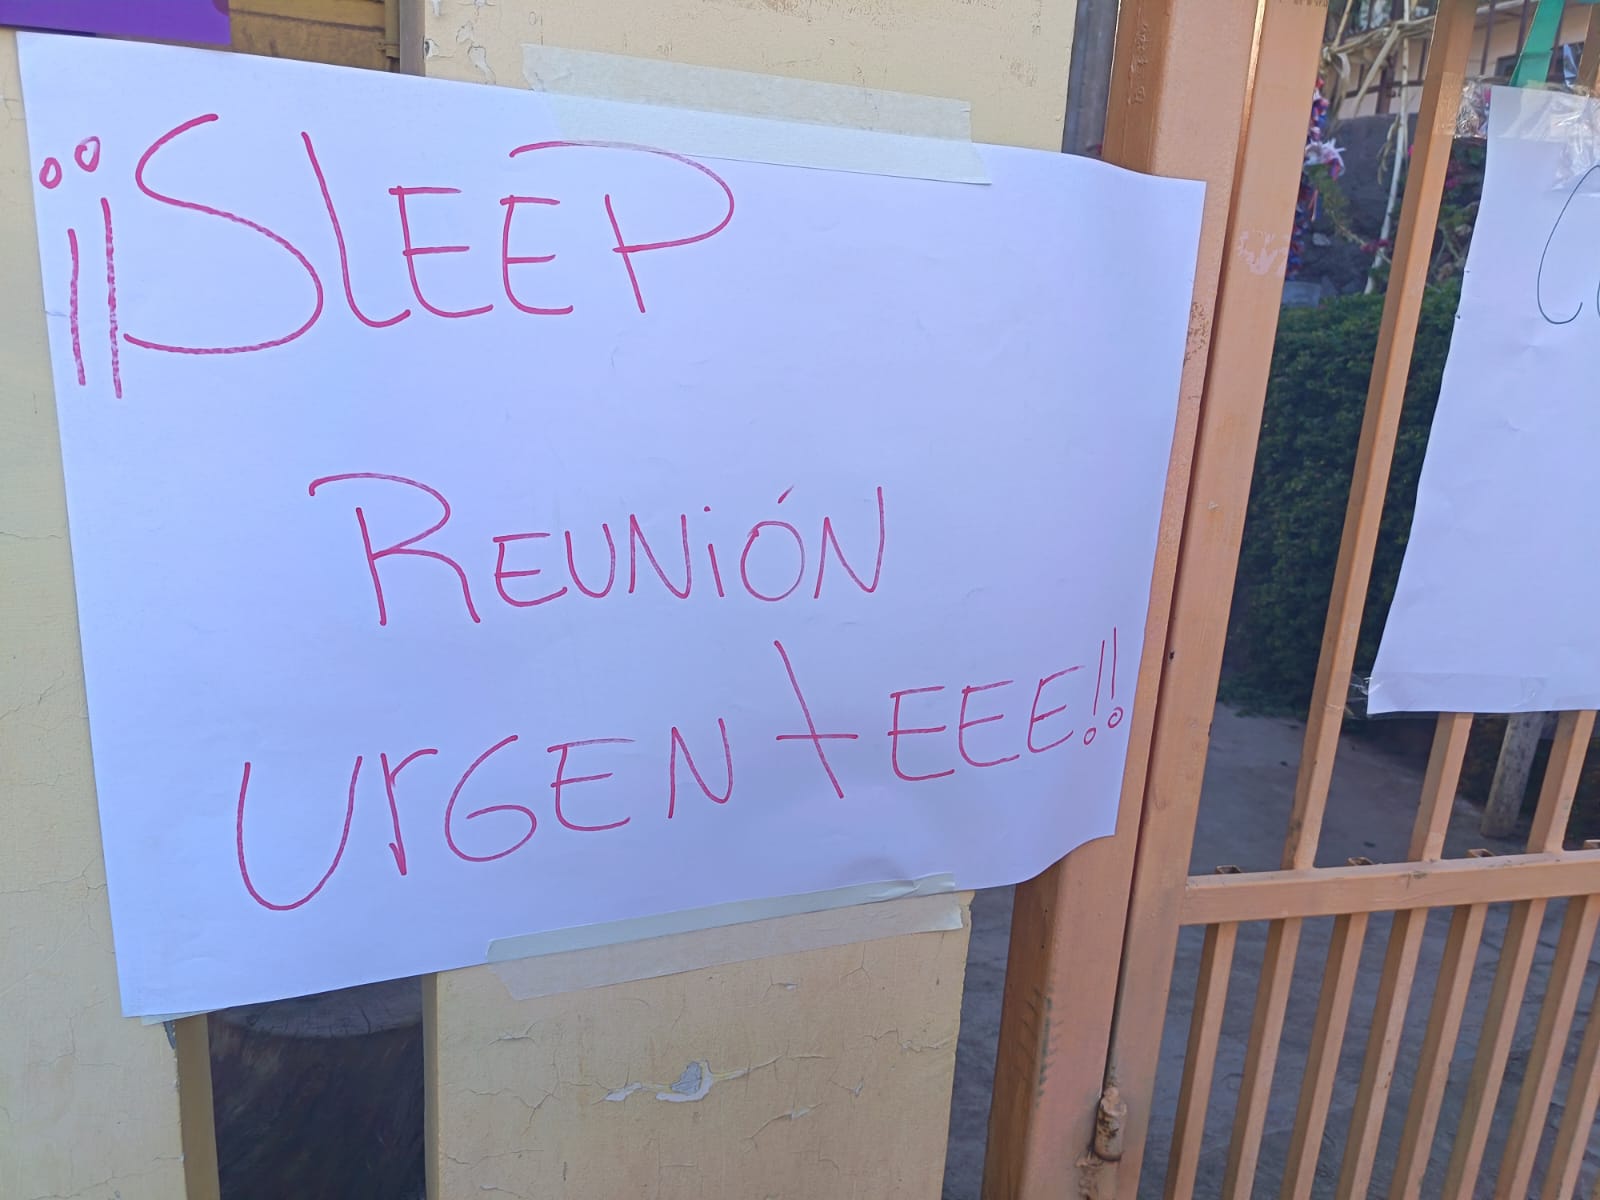 ¡¡SLEEP
REUNiÓN
UrGENtEEE!!